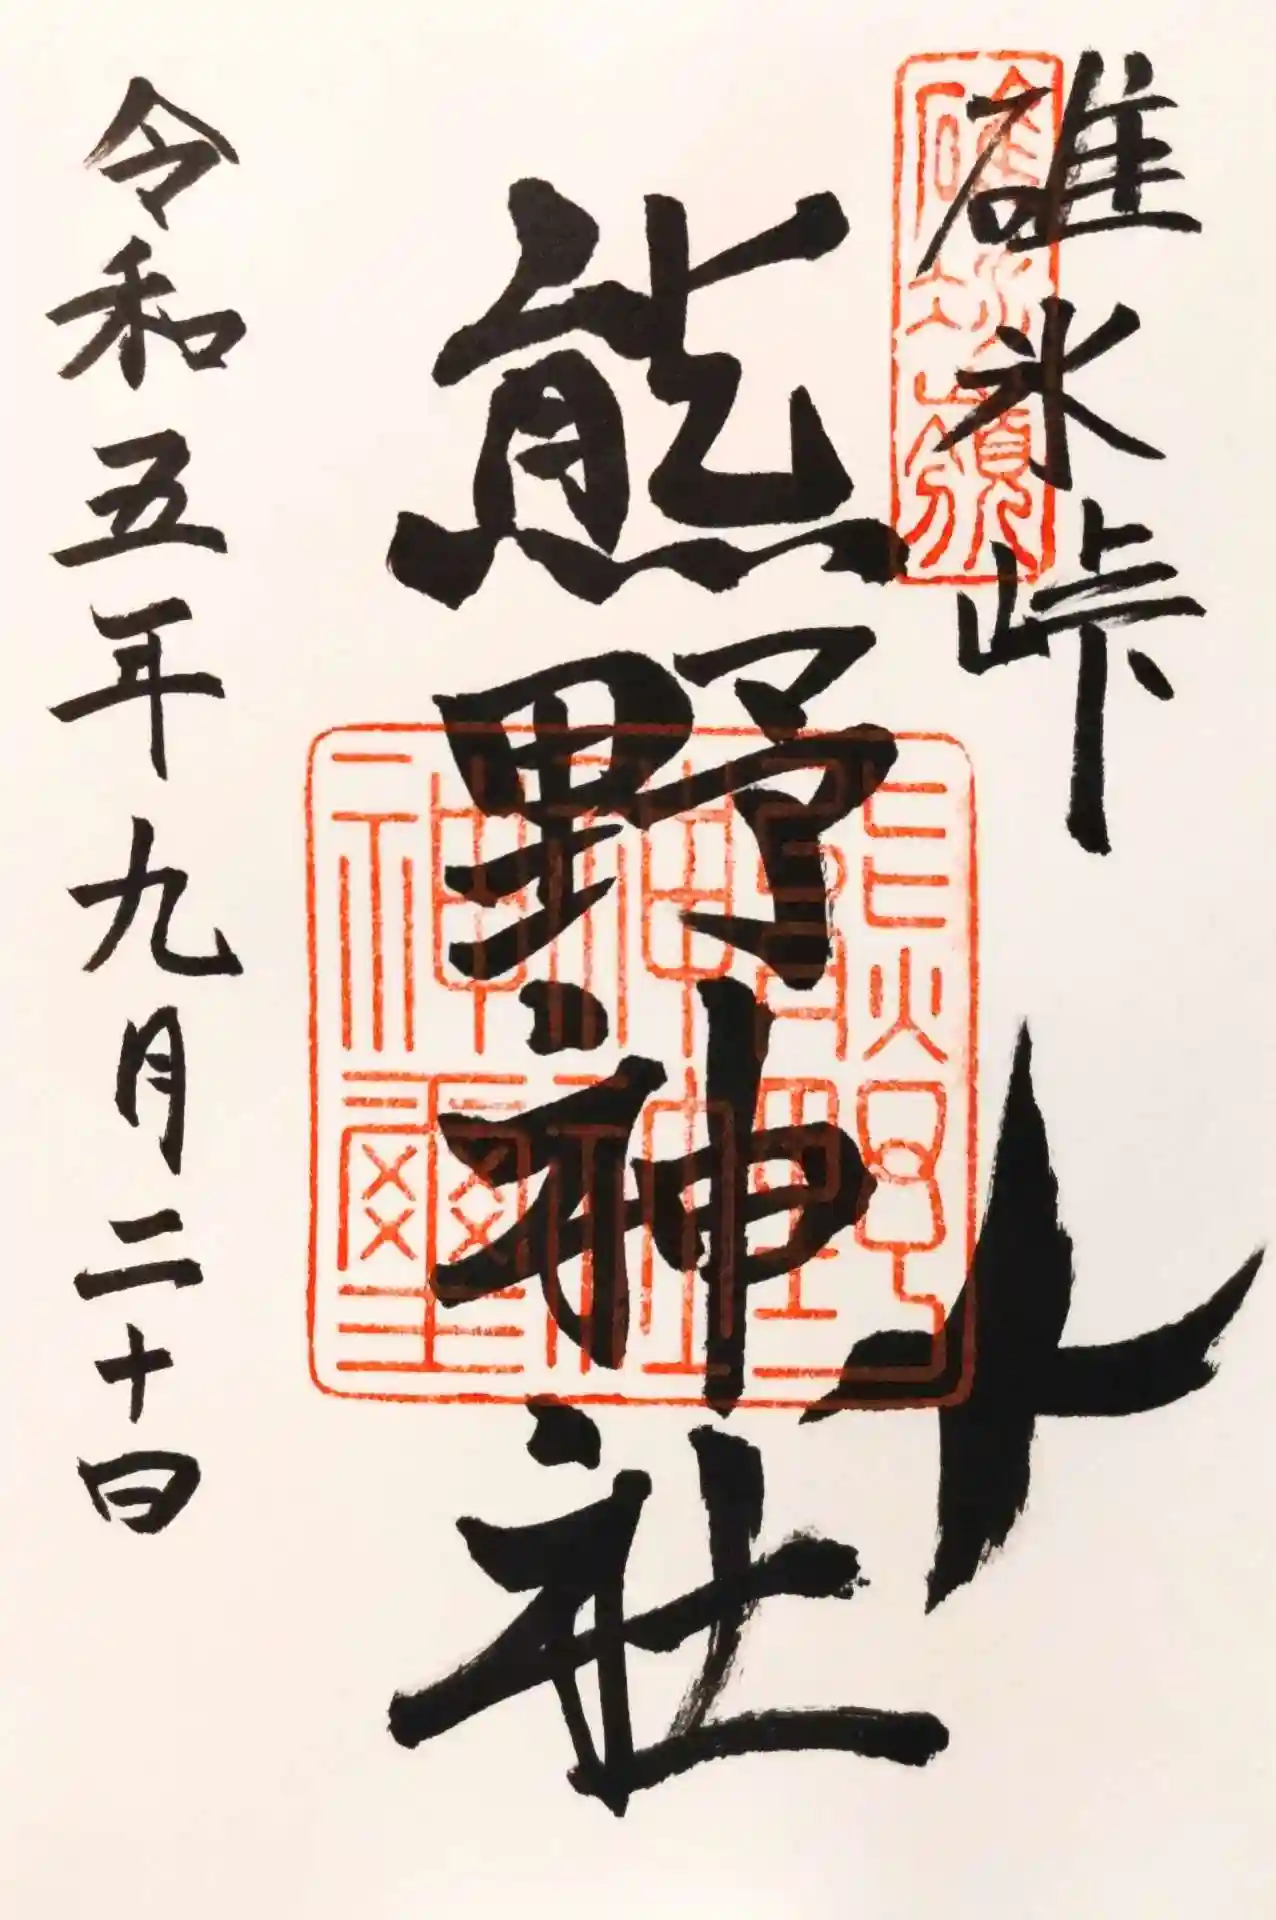 碓氷峠
碓氷嶺
熊野神社
熊野神社神璽
令和五年九月二十日